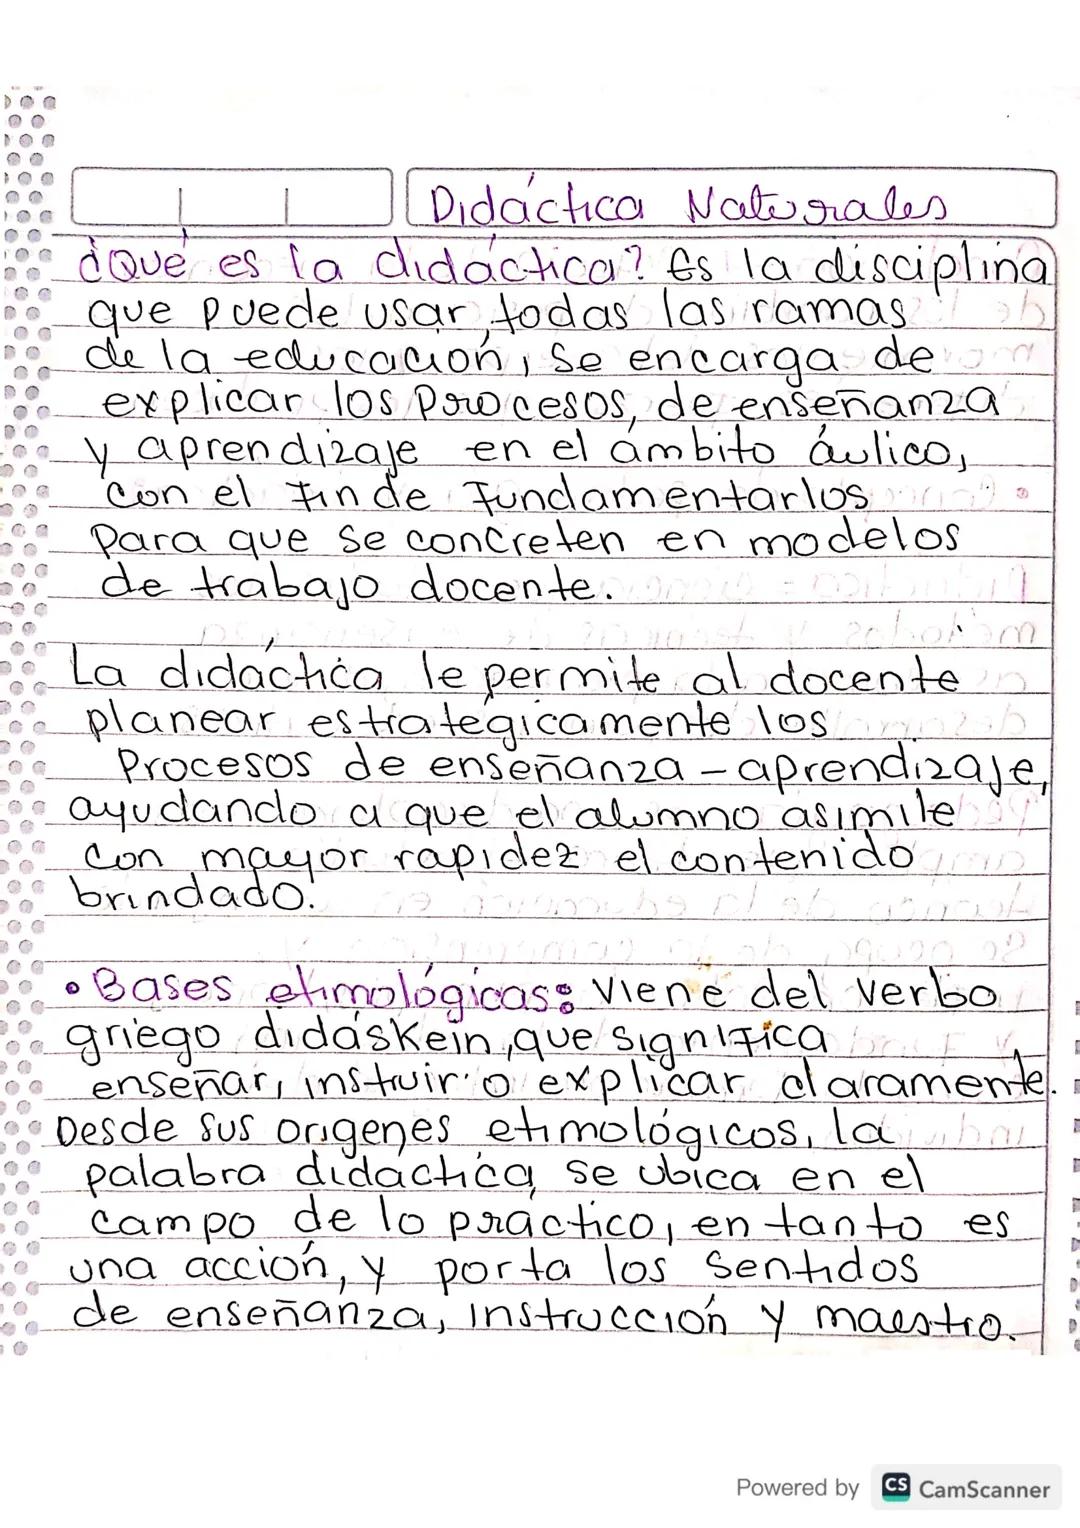 Didáctica Naturales
¿Qué es la didáctica? Es la disciplina
que puede usar todas las ramas
de la educación, se encarga de
explicar los procesos de enseñanza
y aprendizaje en el ámbito áulico,
con el fin de fundamentarlos
para que se concreten en modelos
de trabajo docente.
La didáctica le permite al docente
planear estrategicamente los
procesos de enseñanza - aprendizaje,
ayudando a que el alumno asimile
con mayor rapidez el contenido
brindado.
• Bases etimológicas: Viene del verbo
griego didáskein, que significa
enseñar, instruir o explicar claramente.
Desde sus origenes etimológicos, la
palabra didactica se ubica en el
campo de lo práctico, en tanto es
una acción, y porta los sentidos
de enseñanza, instrucción y maestro.
Powered by CS CamScanner